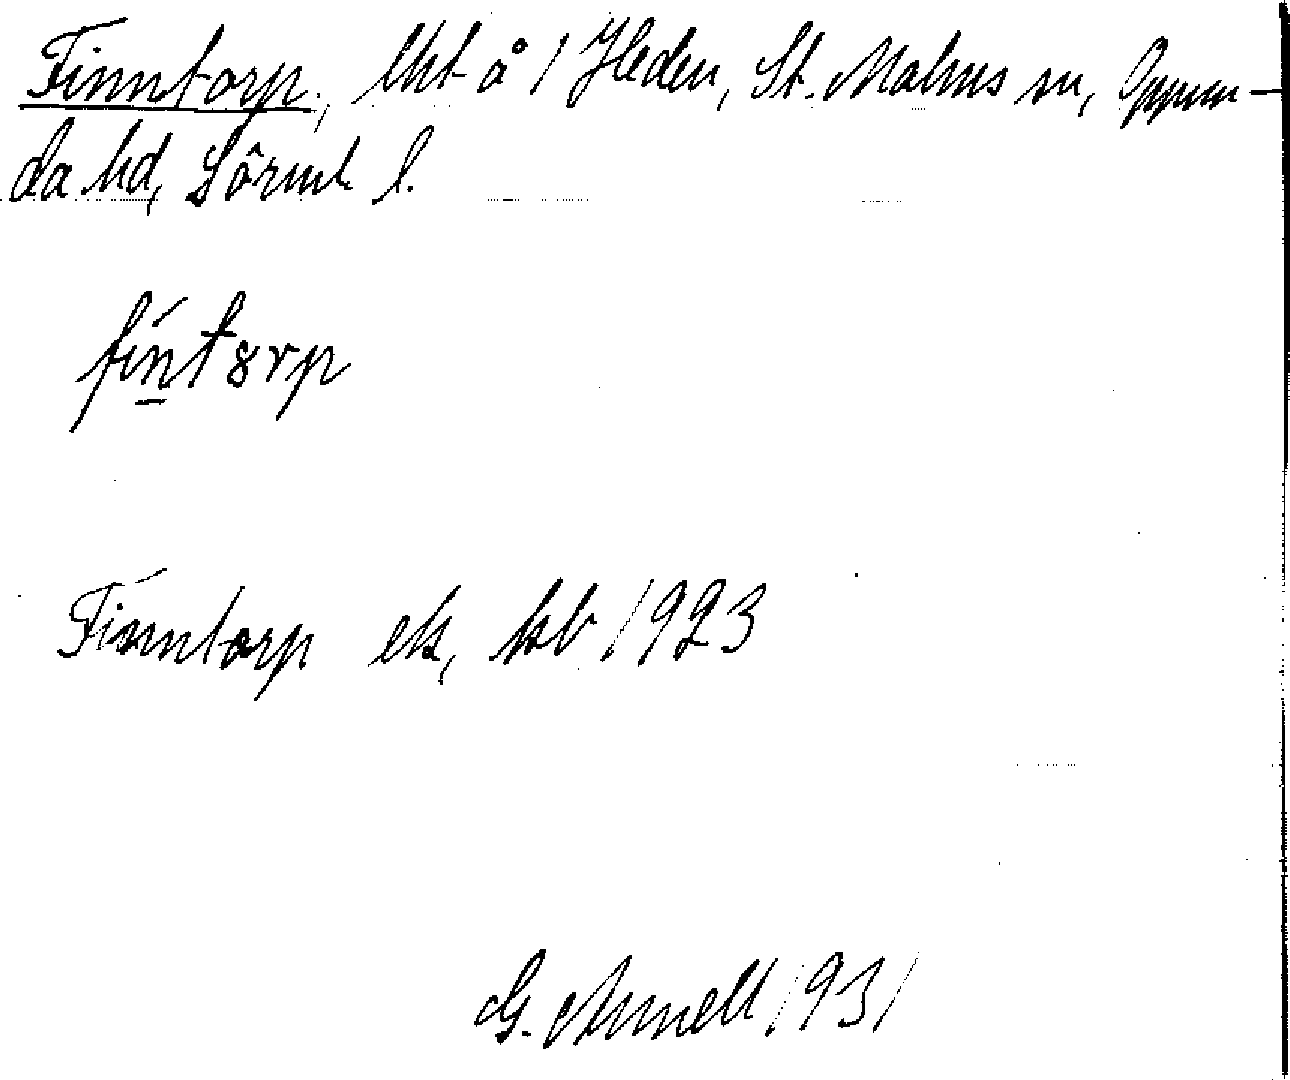 Finntorp, lht å 1 Heden, St. Malms sn, Oppun-
da hd, Sörml. l.
fíntorp
Finntorp ek, kb 1923
G. Arnell 1931